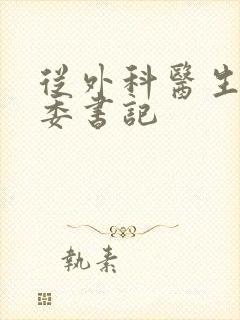 從外科醫生
委書記
執素